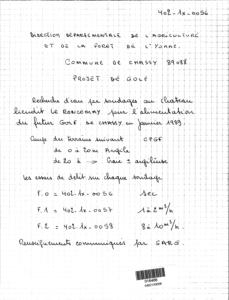 402-1x-0056
DIRECTION DÉPARTEMENTALE DE L'AGRICULTURE
ET DE LA FORET DE L'YONNE.
COMMUNE DE CHASSY 89088
PROJET DE GOLF
Recherche d'eau par sondages au chateau
lieudit LE RONCEMAY pour l'alimentation
du futur GOLF DE CHASSY en janvier 1989.
Coupe des terrains suivant CPGF
de 0 à 20m Argile
de 20 à → Craie ± argileuse
Les essais de débit sur chaque sondage
F.0 = 402-1x-0056 sec
F.1 = 402-1x-0057 1 à 2 m³/h
F.2 = 402-1x-0058 8 à 10 m³/h
Renseignements communiqués par